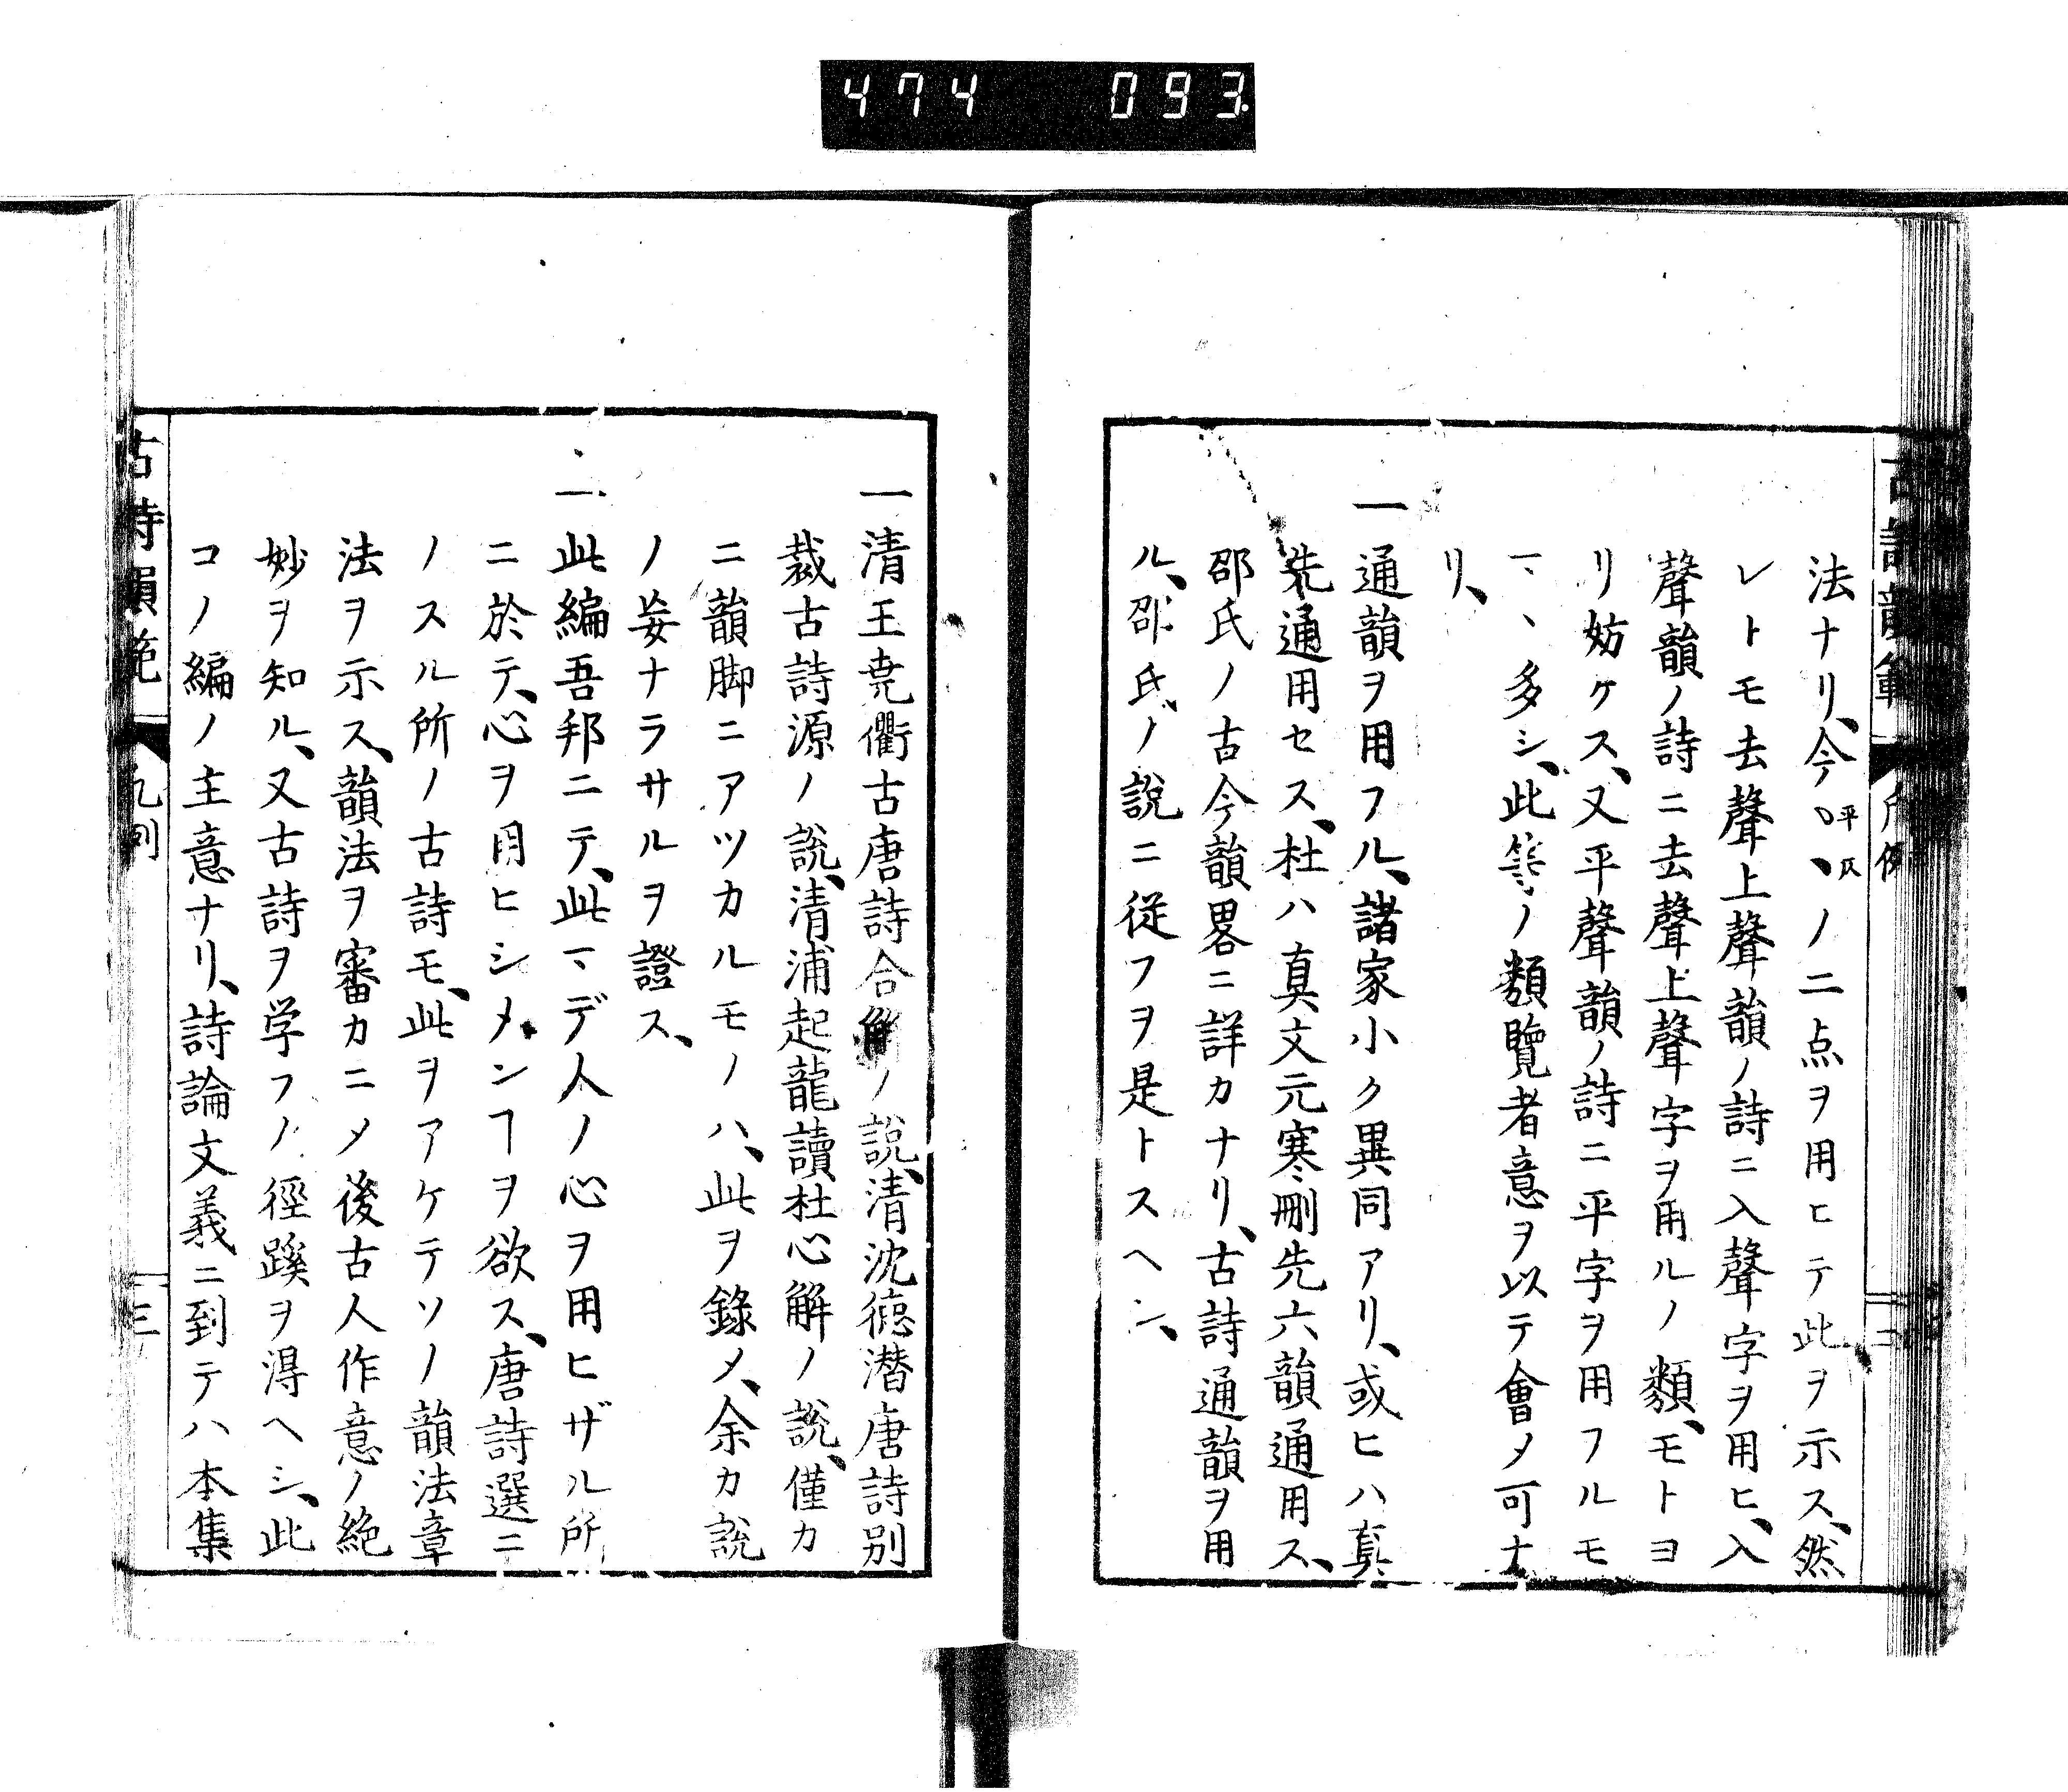 474 093
古詩韻範 凡例
法ナリ、今〻平、仄ノ二点ヲ用ヒテ此ヲ示ス、然
レトモ去聲上聲韻ノ詩ニ入聲字ヲ用ヒ、入
聲韻ノ詩ニ去聲上聲字ヲ用ルノ類、モトヨ
リ妨ケス、又平聲韻ノ詩ニ平字ヲ用フルモ
マヽ多シ、此等ノ類覽者意ヲ以テ會メ可ナ
リ、
一通韻ヲ用フル、諸家小ク異同アリ、或ヒハ真
先通用セス、杜ハ真文元寒刪先六韻通用ス、
邵氏ノ古今韻畧ニ詳カナリ、古詩通韻ヲ用
ル、邵氏ノ說ニ從フヲ是トスヘシ、
一清王堯衢古唐詩合解ノ說、清沈德潜唐詩別
裁古詩源ノ說、清浦起龍讀杜心解ノ說、僅カ
ニ韻脚ニアツカルモノハ、此ヲ錄メ、余カ說
ノ妄ナラサルヲ證ス、
一此編吾邦ニテ、此マデ人ノ心ヲ用ヒザル所
ニ於テ、心ヲ用ヒシメンヿヲ欲ス、唐詩選ニ
ノスル所ノ古詩モ、此ヲアケテソノ韻法章
法ヲ示ス、韻法ヲ審カニメ後古人作意ノ絶
妙ヲ知ル、又古詩ヲ学フノ徑蹊ヲ得ヘシ、此
コノ編ノ主意ナリ、詩論文義ニ到テハ本集
古詩韻範 凡例 三